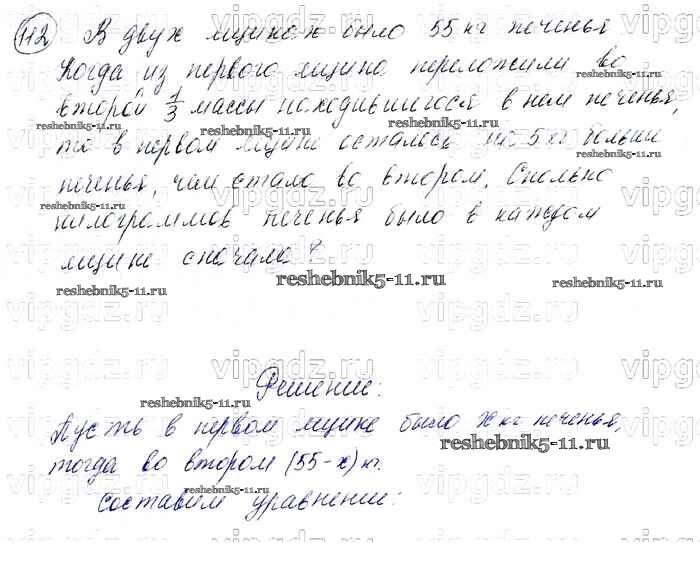 112 В двух ящиках было 55 кг печенья
Когда из первого ящика переложили во
второй 1/3 массы находившегося в нем печенья,
то в первом ящике осталось на 5 кг больше
печенья, чем стало во втором. Сколько
килограммов печенья было в каждом
ящике сначала?
Решение:
Пусть в первом ящике было x кг печенья,
тогда во втором (55-x) кг.
Составим уравнение:
vipgdz.ru
reshebnik5-11.ru